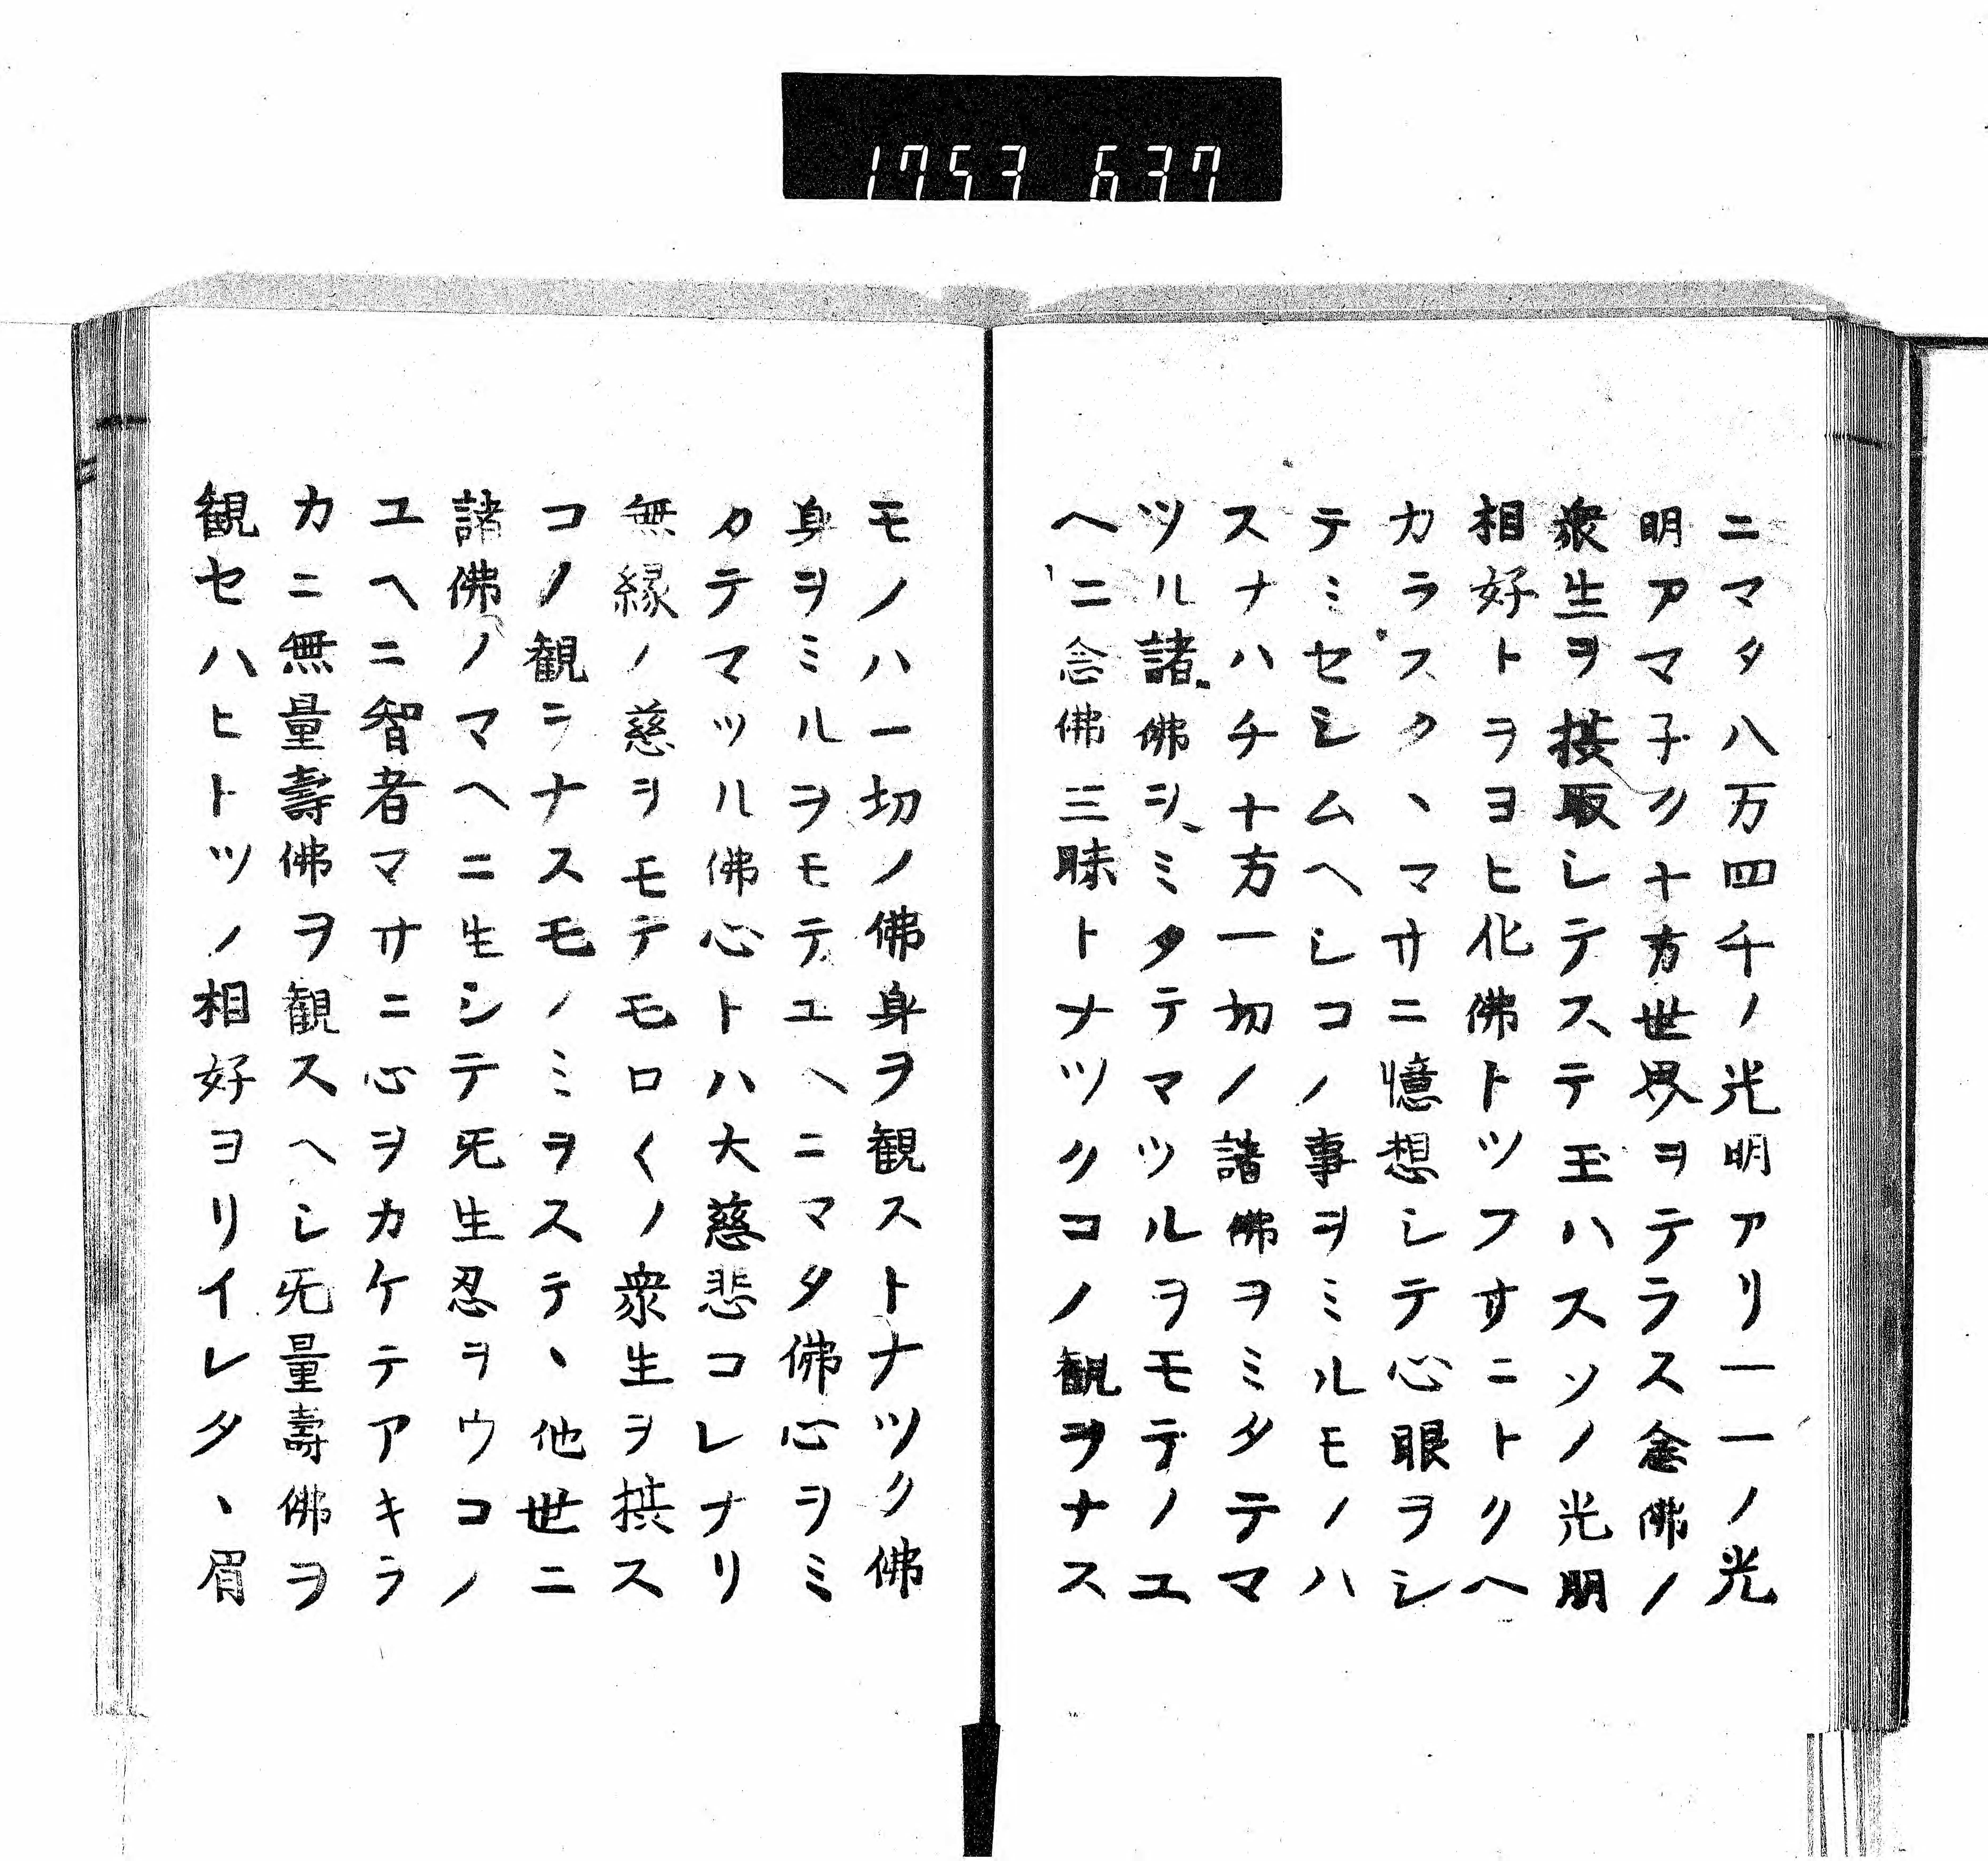 1753 637
ニマタ八万四千ノ光明アリ一一ノ光
明アマ子ク十方世界ヲテラス念佛ノ
衆生ヲ摂取シテステ玉ハスソノ光明
相好トヲヨヒ化佛トツフサニトクヘ
カラスタヽマサニ憶想シテ心眼ヲシ
テミセシムヘシコノ事ヲミルモノハ
スナハチ十方一切ノ諸佛ヲミタテマ
ツル諸佛ヲミタテマツルヲモテノユ
ヘニ念佛三昧トナツクコノ観ヲナス
モノハ一切ノ佛身ヲ観ストナツク佛
身ヲミルヲモテユヘニマタ佛心ヲミ
タテマツル佛心トハ大慈悲コレナリ
無縁ノ慈ヲモテモロ〱ノ衆生ヲ摂ス
コノ観ヲナスモノミヲステヽ他世ニ
諸佛ノマヘニ生シテ旡死生忍ヲウコノ
ユヘニ智者マサニ心ヲカケテアキラ
カニ無量壽佛ヲ観スヘシ旡量壽佛ヲ
観セハヒトツノ相好ヨリイレタヽ眉